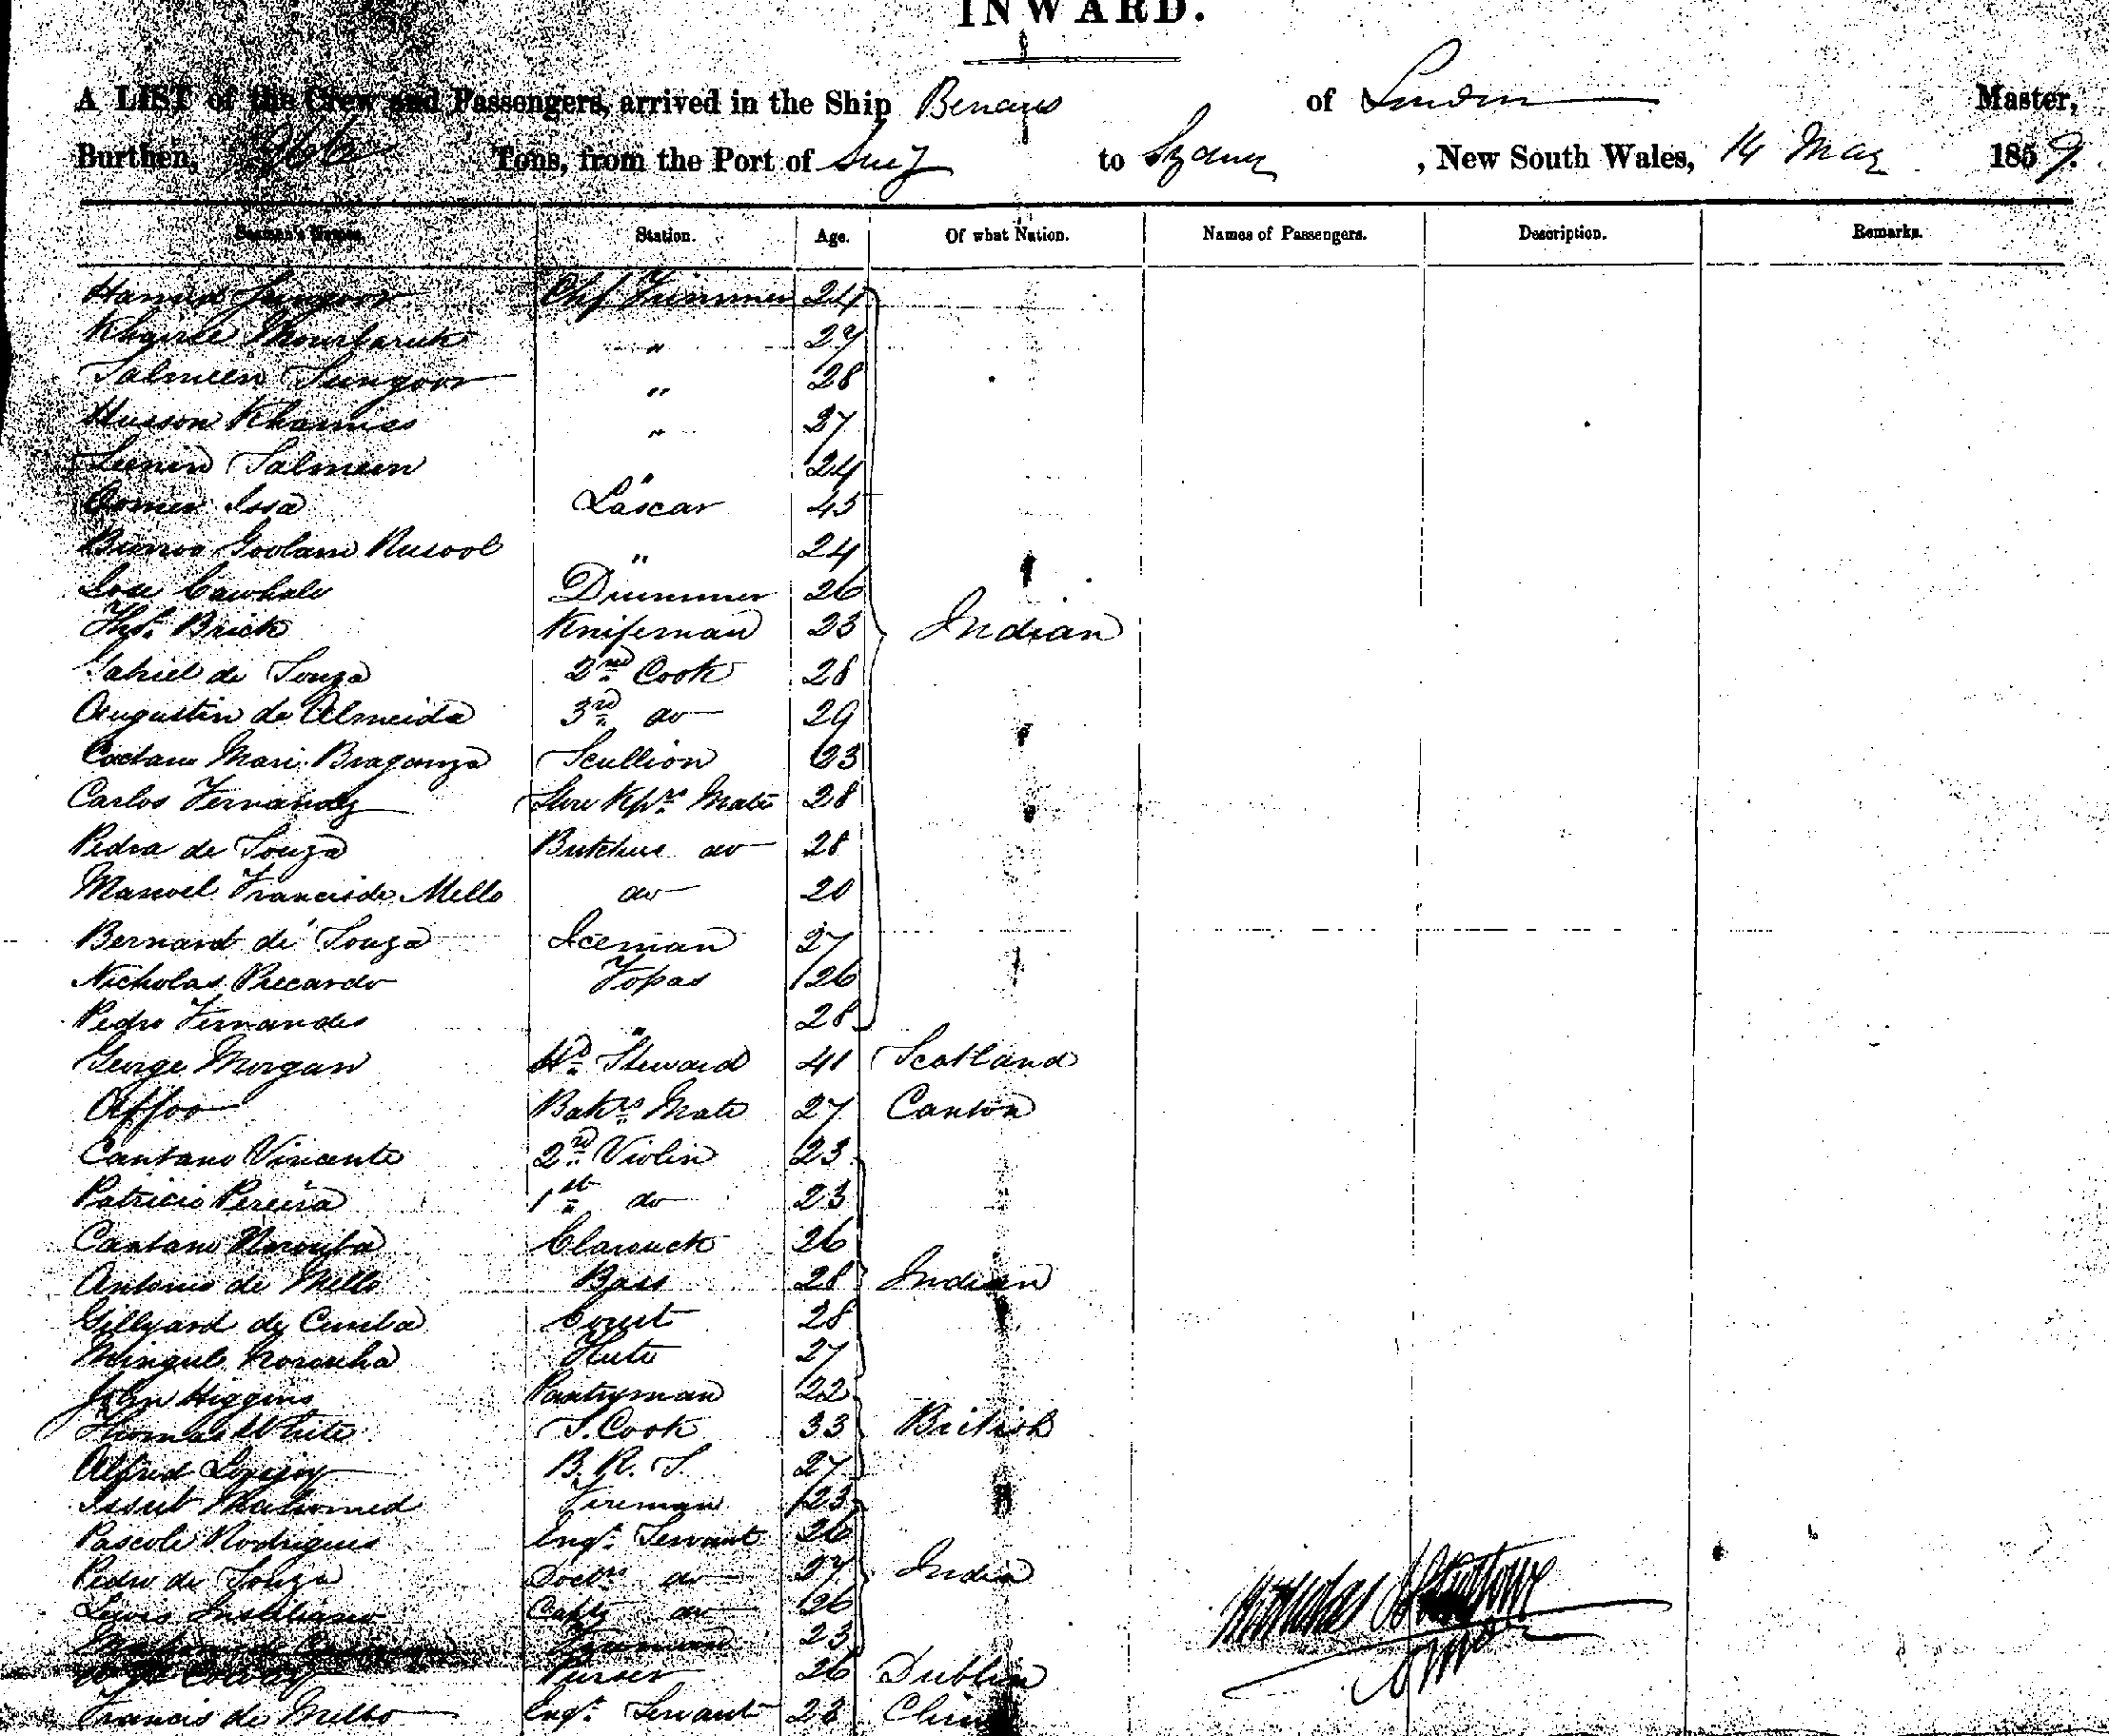 INWARD.
A LIST of the Crew and Passengers, arrived in the Ship Benares of London Master,
Burthen, Tons, from the Port of Suez to Sydney, New South Wales, 14 May 1859.
Seaman's Names. Station. Age. Of what Nation. Names of Passengers. Description. Remarks.
24
29
Salmeen Sungoor " 28
Husson Khamiss " 27
Salmeen " 24
Issa Lascar 45
Goolam Rusool " 24
Drummer 26
Brick Knifeman 23 Indian
Gabriel de Souza 2nd Cook 28
Augustin de Almeida 3rd do 29
Caetano Mari Braganza Scullion 23
Carlos Fernandez Store Kprs Mate 28
Pedra de Souza Butchers do 28
Manoel Francis de Mello do 20
Bernard de Souza Iceman 27
Nicholas Precardo Topas 26
Pedro Fernandes " 28
George Morgan Hd Steward 41 Scotland
Affoo Bakrs Mate 27 Canton
Caetano Vincente 2nd Violin 23
Patricio Pereira 1st do 23
Caetano 26
Antonio de Mello Bass 28 Indian
28
Noronha Flute 27
John Higgins Pantryman 22
Thomas White S. Cook 33 British
Alfred B. R. S. 27
Mahomed Fireman 23
Pascoli Rodrigues Engr. Servant 26
Pedro de Souza Doctrs do 27 India
Lewis Capts do 26
23
Purser 26 Dublin
Francis de Mello Engr. Servant 28 China